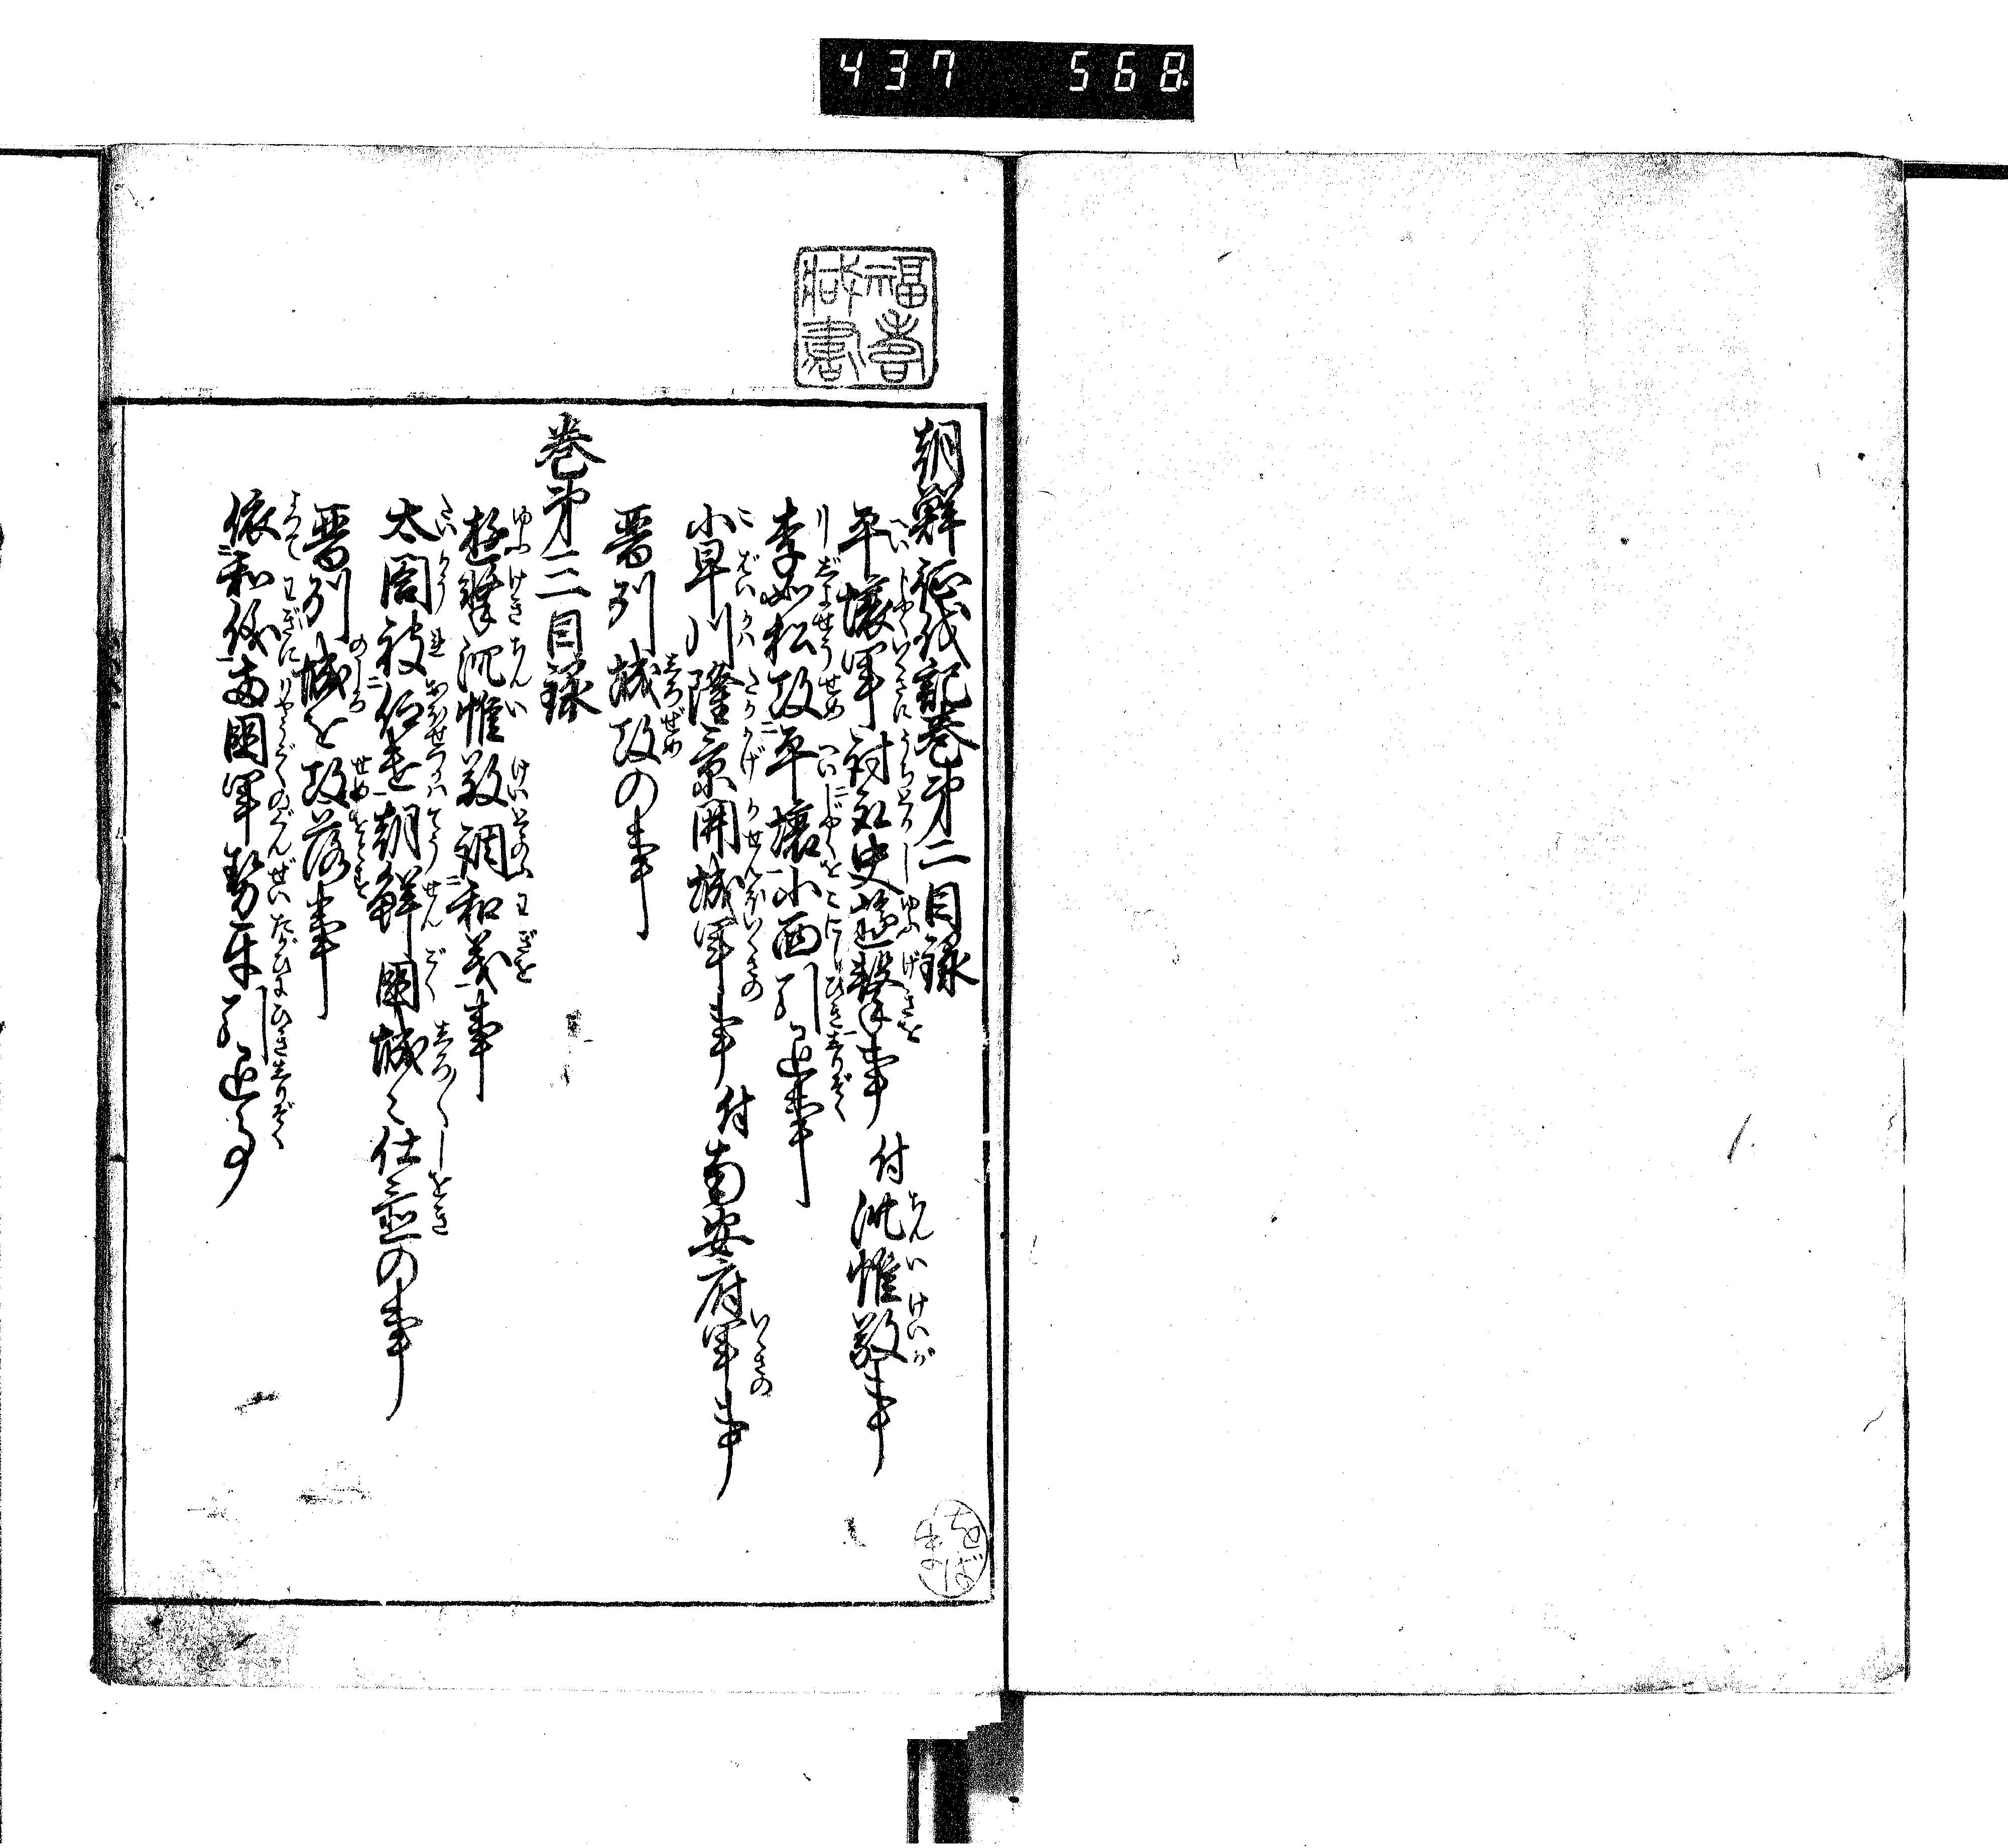 437 568
朝鮮征伐記巻第二目録
平壌軍討取史遊撃事 付 沈惟敬事
李如松攻平壌小西引退事
小早川隆景開城軍事 付 南安府軍事
晋州城攻の事
巻第三目録
遊撃沈惟敬調和義事
太閤被仰遣朝鮮国城々仕置の事
晋州城を攻落事
依和儀両国軍勢互引退事